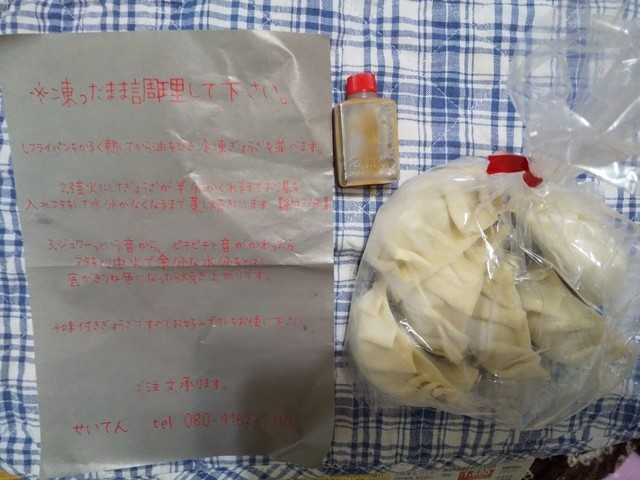 ※凍ったまま調理して下さい。
1.フライパンをかるく熱してから油をひき冷凍ぎょうざを並べます。
2.強火にしてぎょうざが半分かくれるまでお湯を
入れフタをして水分がなくなるまで蒸し焼きにします
3.ジュワーっという音から、ピチピチと音がかわったら
フタをとり中火で余分な水分をとばし
底がきつね色になったら焼き上がりです。
※味付きぎょうざですのでお好みでタレをお使い下さい。
ご注文承ります。
せいてん tel 080-416